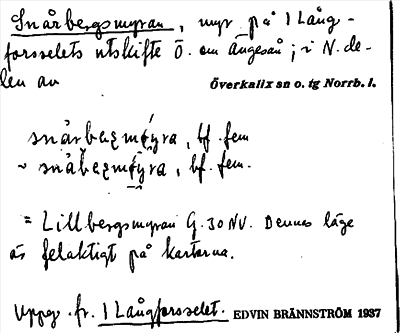 Snårbergsmyran, myr på 1 Lång-
forsselets utskifte Ö. om Ängesån; i N. de-
len av Överkalix sn o. tg Norrb. l.
snårbæʒmýra, bf. fem
~ snåbæʒmýra, bf. fem.
= Lillbergsmyran G. 30 NV. Dennas läge
är felaktigt på kartorna.
Uppg. fr. 1 Långforsselet. EDVIN BRÄNNSTRÖM 1937